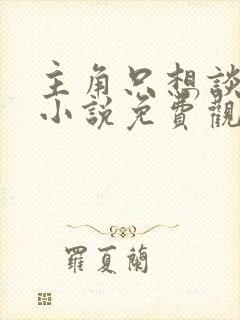 主角只想談
小說免費觀
羅夏蘭